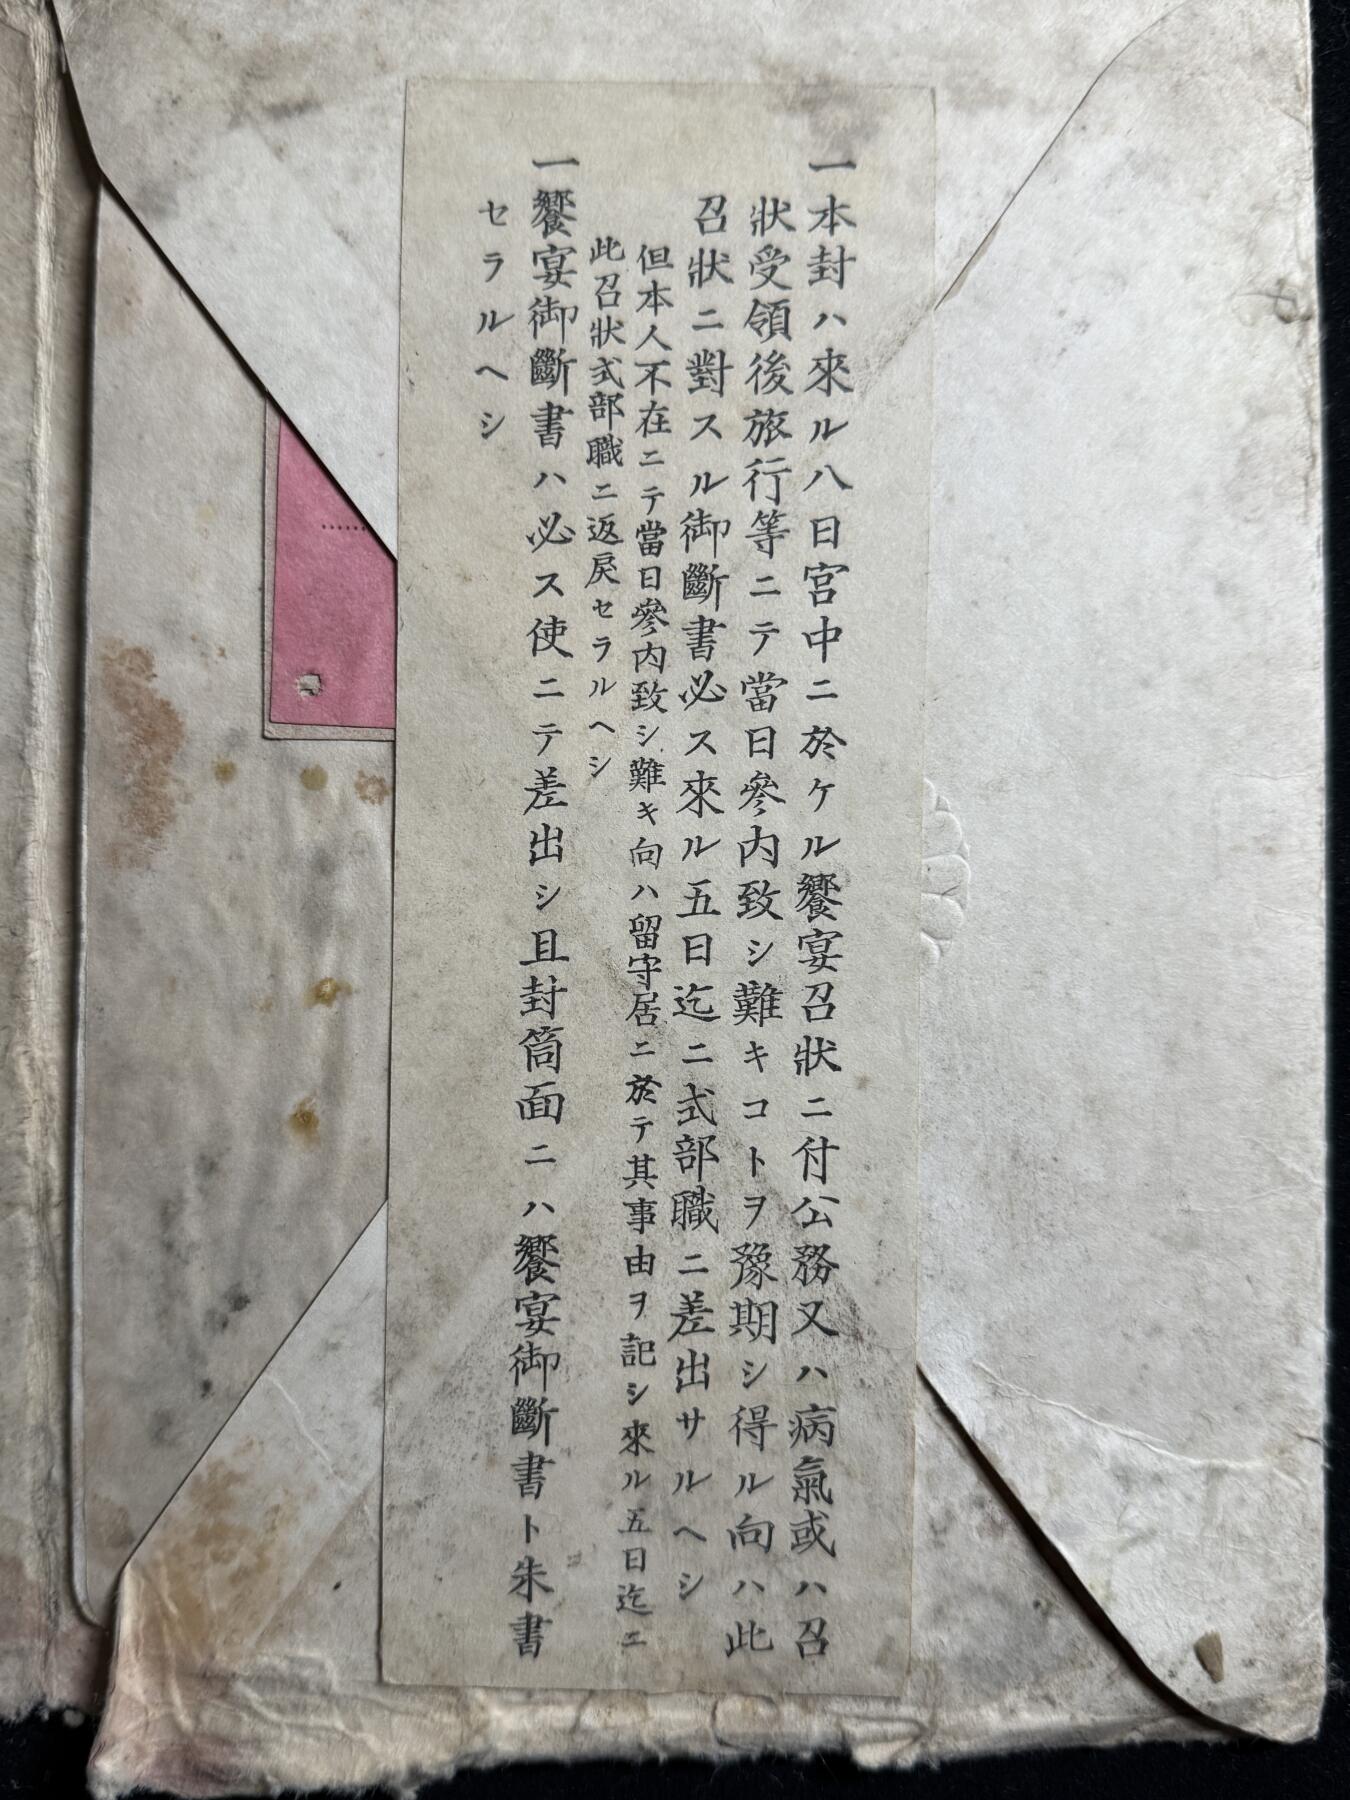 一本封ハ來ル八日宮中ニ於ケル饗宴召狀ニ付公務又ハ病氣或ハ召
狀受領後旅行等ニテ當日參内致シ難キコトヲ豫期シ得ル向ハ此
召狀ニ對スル御斷書必ス來ル五日迄ニ式部職ニ差出サルヘシ
但本人不在ニテ當日參内致シ難キ向ハ留守居ニ於テ其事由ヲ記シ來ル五日迄ニ
此召狀式部職ニ返戾セラルヘシ
一饗宴御斷書ハ必ス使ニテ差出シ且封筒面ニハ饗宴御斷書ト朱書
セラルヘシ